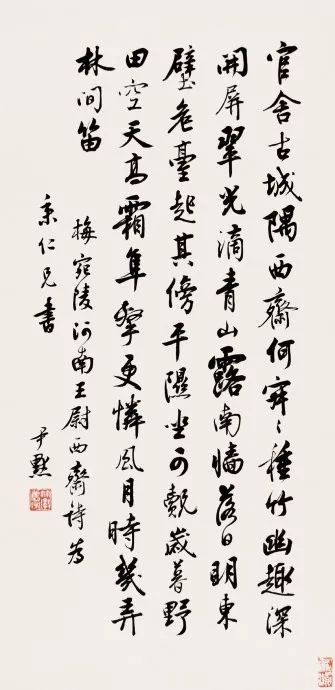 官舍古城隅西齋何穽〻種竹幽趣深
開屏翠光滴青山露南墙落日明東
壁危臺起其傍平隰坐可覿歲暮野
田空天高霜隼擊更憐風月時幾弄
林间笛
梅宛陵河南王尉西齋詩為
秉仁兄書
尹默